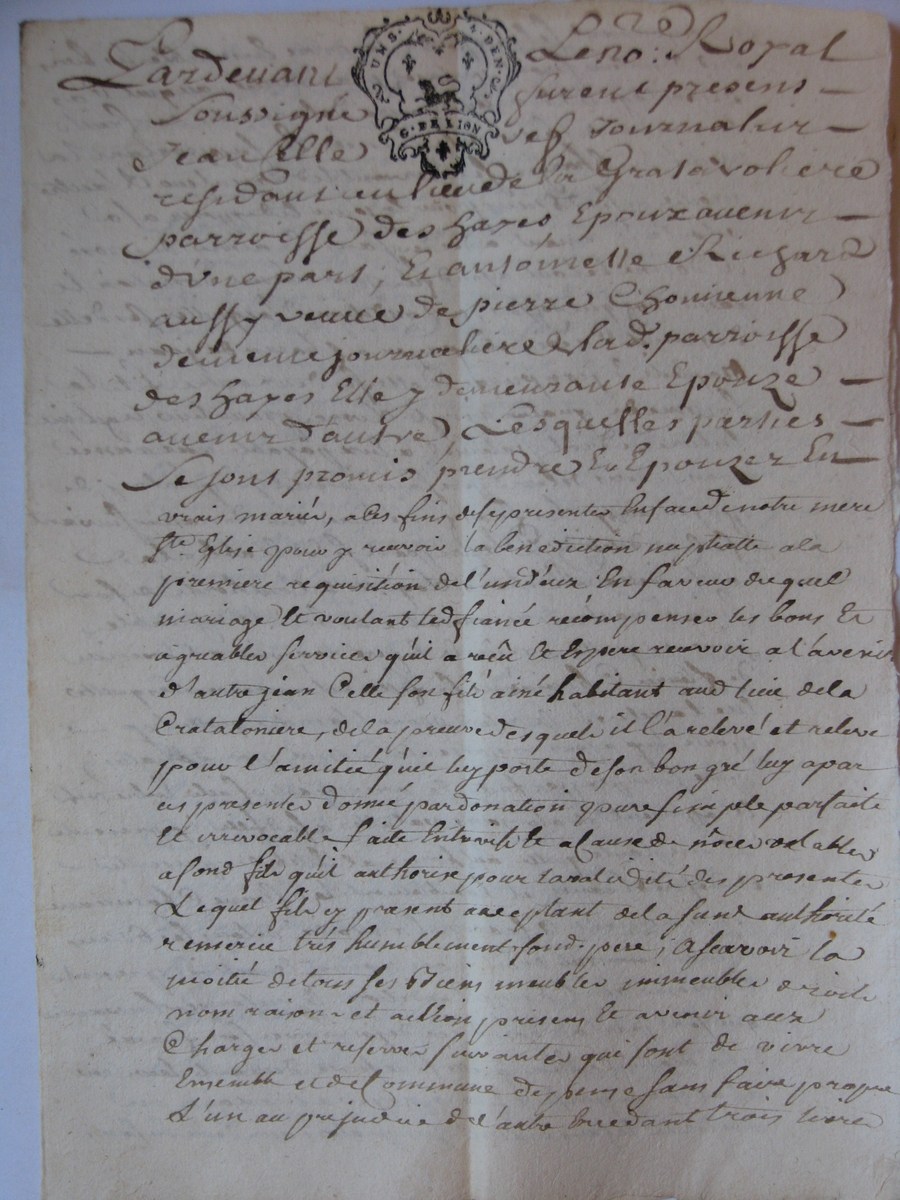 Pardevant Le no.re Royal
Soussigné furent presens
Jean Celle vef Journalier
residant en lieu de la Gratavoliere
parroisse des hayes Epoux avenir
d'une part, Et antoinette Richard
aussy veuve de pierre Chonienne
de meme journaliere de lad. parroisse
des hayes Elle y demeurante Epouze
avenir d'autre, Lesquelles parties
Se sont promis prendre Et Epouzer En
vrais mariés, a Ces fins de se presenter En face de notre mere
S.te Eglise pour y recevoir la benediction nuptialle a la
premiere requisition de l'un d'eux En faveur duquel
mariage Et voulant led fiancé recompenser les bons Et
agreables services qu'il a reçû Et Espere recevoir a l'avenir
d'autre jean Celle son fils ainé habitant aud lieu de la
Grataloniere, de la preuve desquels il l'a relevé et releve
pour l'amitié qu'il luy porte de son bon gré luy a par
ces presentes donné par donation pure simple parfaite
Et irrevocable faite Entre vifs Et a Cause de nôces valables
a son d fils qu'il authorise pour la validité des presentes
Lequel fils cy present acceptant de la susd authorité
remercie trés humblement son d. pere, A scavoir la
moitié de tous ses Biens meubles immeubles droits
nom raisons et action presens Et avenir aux
Charges et reserves suivantes qui sont de vivre
Ensemble et de Commune dépense sans faire propre
L'un au prejudice de l'autre trois livres
G. DE LION